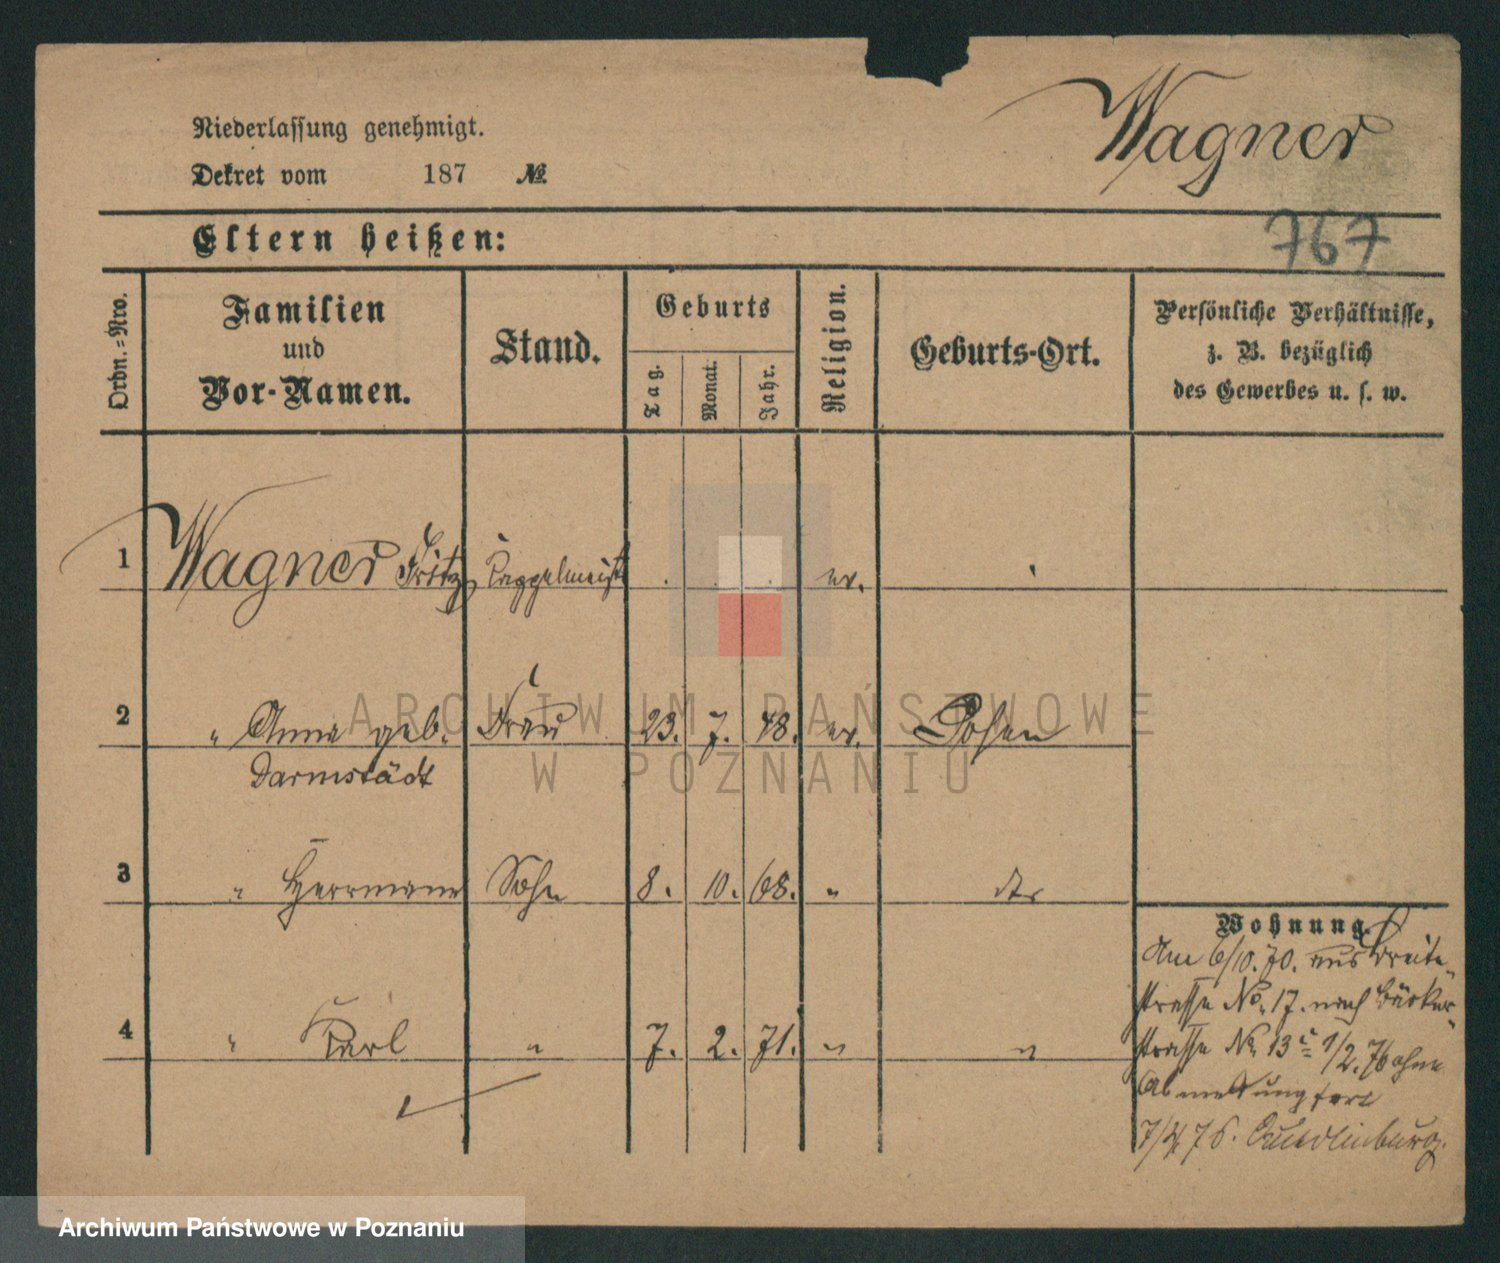 Wagner
Niederlassung genehmigt.
Dekret vom 187 №
767
Eltern heißen:
Ordn.=Nro.
Familien
und
Vor-Namen.
Stand.
Geburts
Tag.
Monat.
Jahr.
Religion.
Geburts-Ort.
Persönliche Verhältnisse,
z. B. bezüglich
des Gewerbes u. s. w.
1 Wagner Fritz ev.
2 " Anna geb. Frau 23. 7. 48. ev. Posen
Darmstädt
3 " Herrmann Sohn 8. 10. 68. " dto
4 " Karl " 7. 2. 71. " "
Wohnung.
Am 6/10. 70. aus Breite-
strasse No. 17. nach Bäcker-
strasse No. 13 1/2. 76 ohne
Abmeldung fort
7/4 76. Quedlinburg.
ARCHIWUM PAŃSTWOWE
W POZNANIU
Archiwum Państwowe w Poznaniu